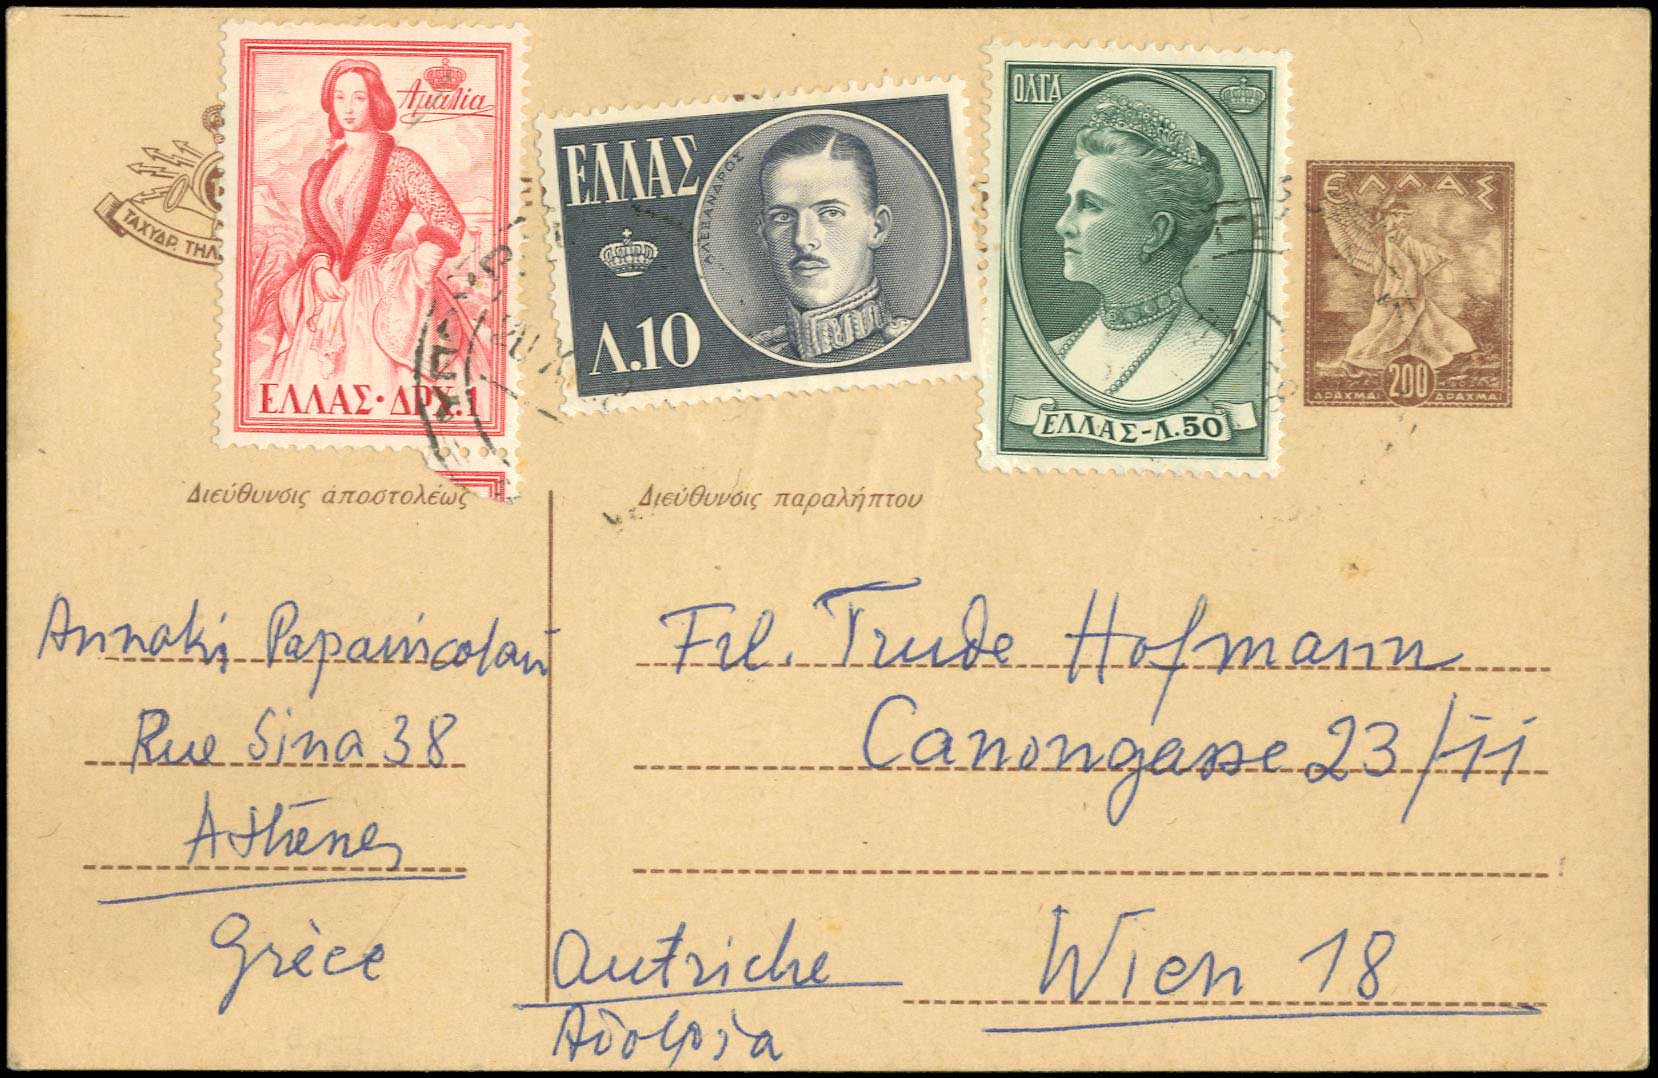 Αμαλία
ΕΛΛΑΣ·ΔΡΧ.1
ΕΛΛΑΣ
ΑΛΕΞΑΝΔΡΟΣ
Λ.10
ΟΛΓΑ
ΕΛΛΑΣ-Λ.50
ΕΛΛΑΣ
200
ΔΡΑΧΜΑΙ ΔΡΑΧΜΑΙ
ΤΑΧΥΔΡ. ΤΗΛ.
Διεύθυνσις ἀποστολέως
Annaki Papanicolaou
Rue Sina 38
Athènes
Grèce
Διεύθυνσις παραλήπτου
Frl. Trude Hofmann
Canongasse 23/II
Wien 18
Autriche
Αὐστρία